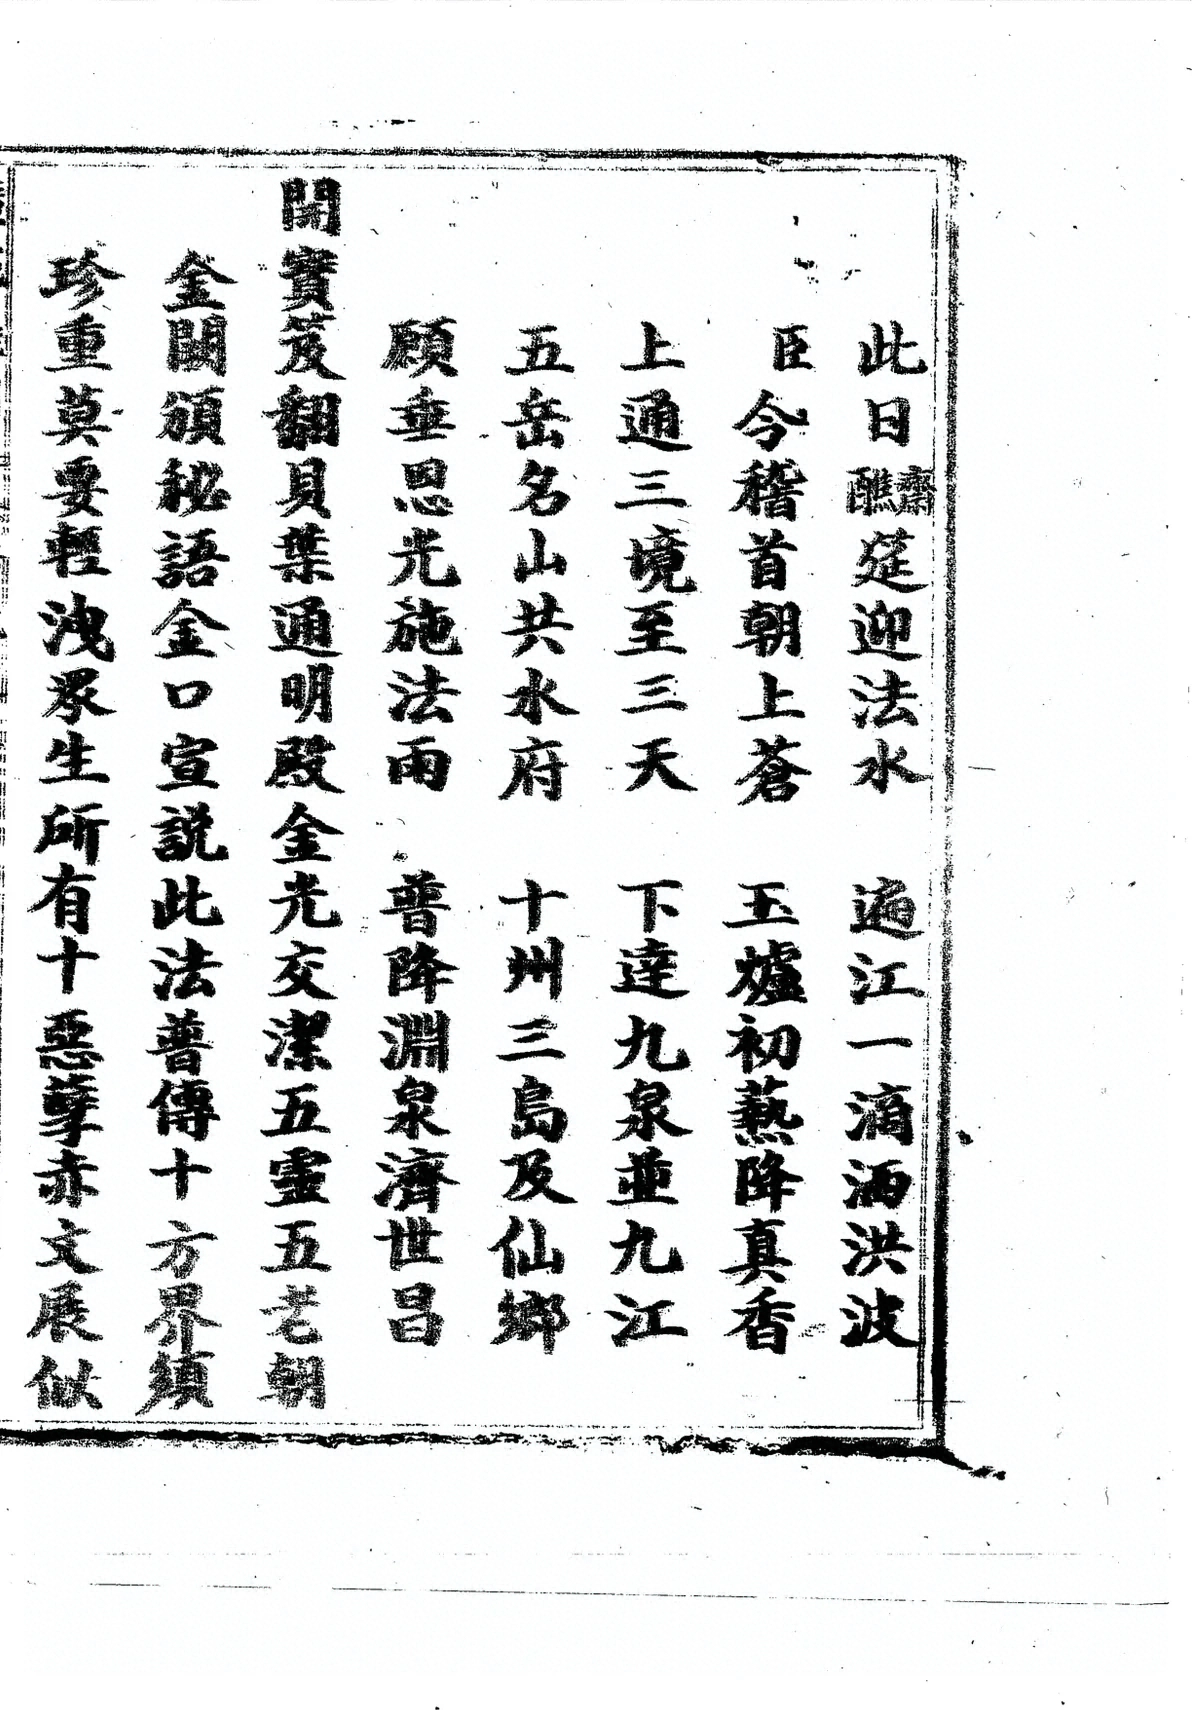 此日齋醮筵迎法水　遍江一滴洒洪波
臣令稽首朝上蒼　玉爐初爇降真香
上通三境至三天　下達九泉並九江
五岳名山共水府　十州三島及仙鄉
願垂恩光施法雨　普降淵泉濟世昌
開寶笈翻貝葉通明殿金光交潔五靈五老朝
金闕頒秘語金口宣説此法普傳十方界須
珍重莫要輕洩眾生所有十惡孽赤文展似